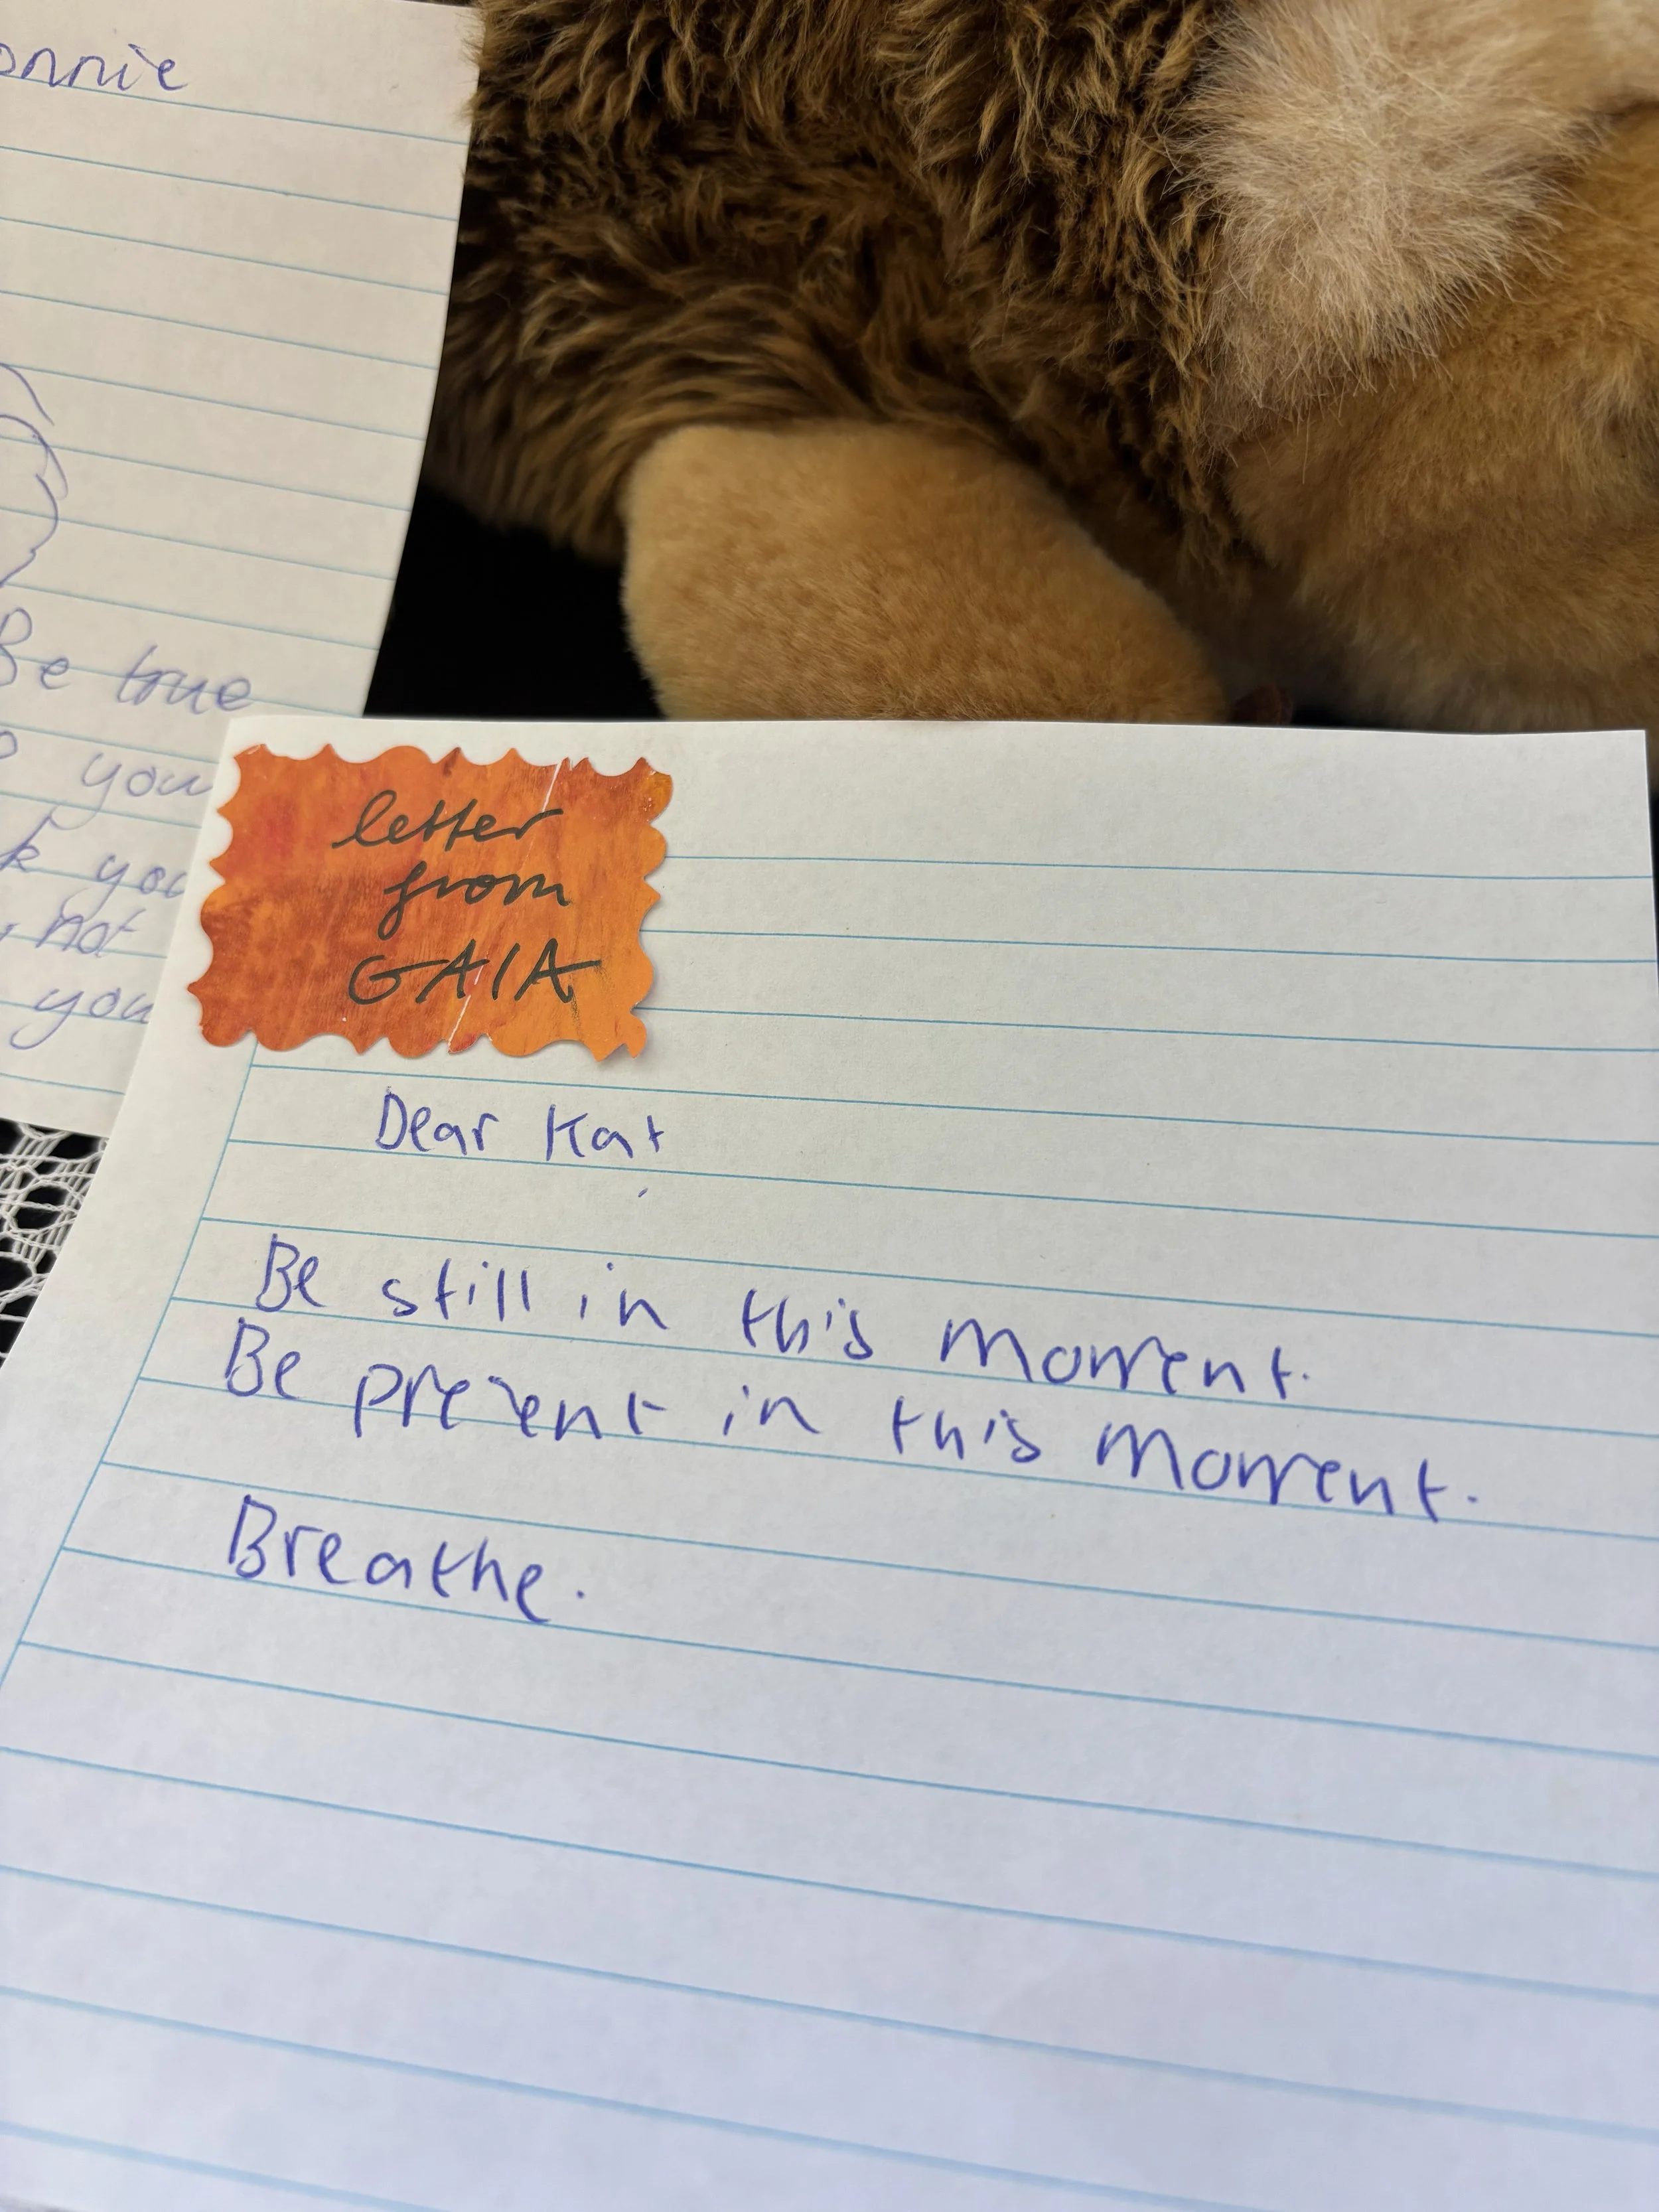 onnie
Be true
you
k you
not
you
letter
from
GAIA
Dear Kat
Be still in this moment.
Be present in this moment.
Breathe.